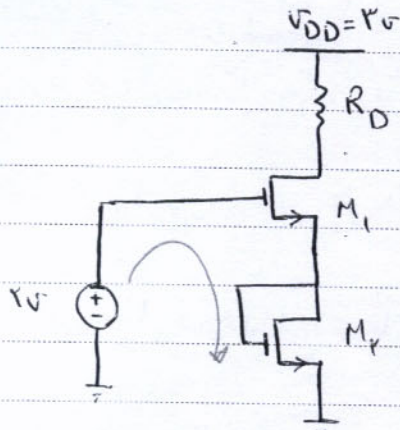 V_DD = ۳v
R_D
M_۱
۲v
+
-
M_۲